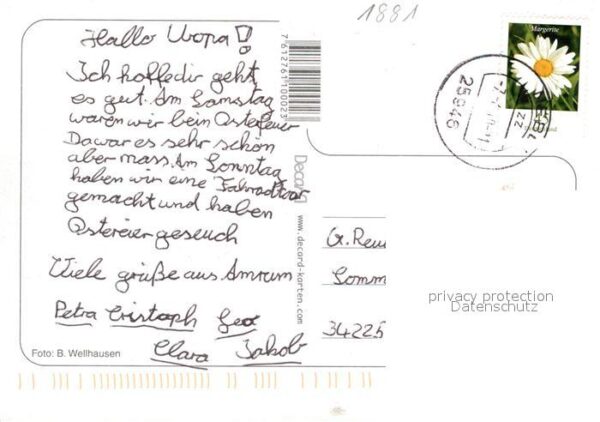 1881
Hallo Uropa!
Ich hoffe dir geht
es gut. Am Samstag
waren wir bein Osterfeuer
Da war es sehr schön
aber nass. Am Sonntag
haben wir eine Fahrradtour
gemacht und haben
Ostereier gesuch
Viele grüße aus Amrum
Petra Cristoph
Clara Jakob
Foto: B. Wellhausen
7612761100023
Decard
www.decard-karten.com
Margerite
25946
G. Reu
Somm
34225
privacy protection
Datenschutz